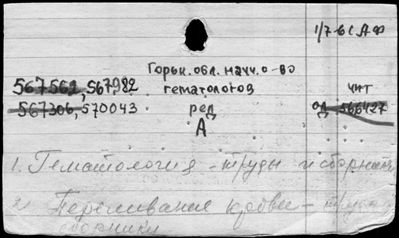 1/7-61 А Ф
Горьк. обл. научн. о-во
567562, 567982 гематологов чит
567306, 570043 ред од 566427
А
1. Гематология - труды и сборники
2) Переливание крови - труды
сборники